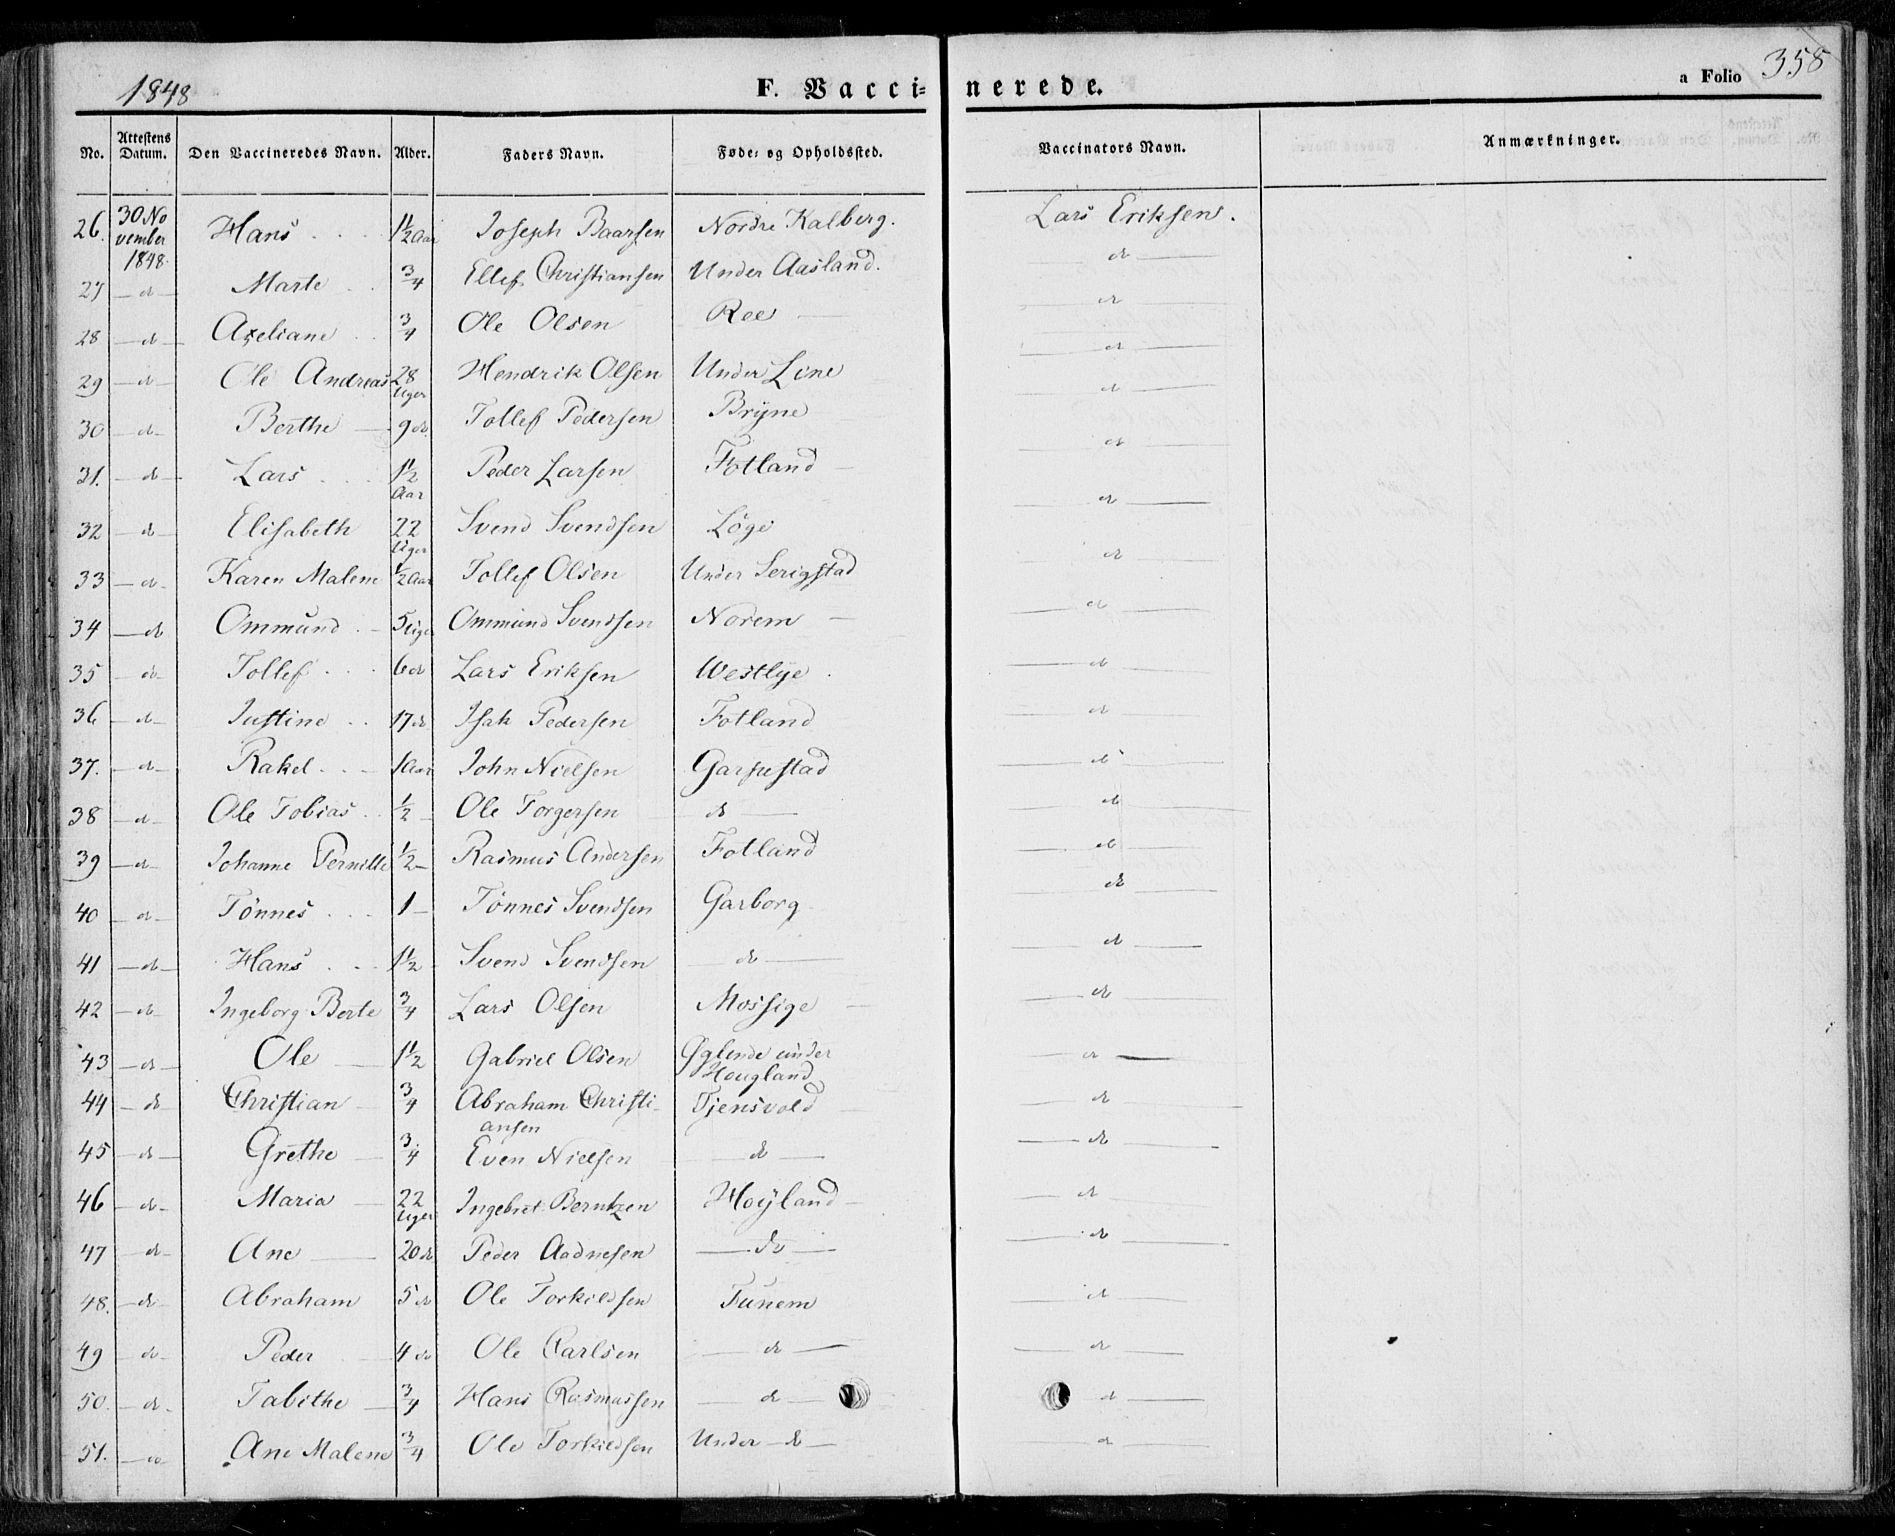 1848 F. Vacci= nerede. a Folio 358
No. Attestens Datum. Den Vaccineredes Navn. Alder. Faders Navn. Føde= og Opholdssted. Vaccinators Navn. Anmærkninger.
26. 30 November 1848. Hans 1½ Aar Joseph Baarsen Nordre Kalberg. Lars Eriksen.
27 - d - Marte ¾ Ellef Christiansen Under Aasland. - d -
28 - d - Axeliane ¾ Ole Olsen Ree - d -
29 - d - Ole Andreas 28 Uger Hendrik Olsen Under Line - d -
30 - d - Berthe 9 do Tollef Pedersen Bryne - d -
31. - d - Lars 1½ Aar Peder Larsen Fotland - d -
32 - d - Elisabeth 22 Uger Svend Svendsen Løge - d -
33 - d - Karen Malene ½ Aar Tollef Olsen Under Serigstad - d -
34 - d Ommund 5 Uger Ommund Svendsen Norem - d -
35 - do - Tollef 6 do Lars Eriksen Westlye - d -
36 - d - Justine 17 do Isak Pedersen Fotland - d -
37. - d - Rakel 1 Aar John Nielsen Garpestad - d -
38 - d - Ole Tobias ½ Ole Torgersen - d - - d -
39 - d - Johanne Pernille ½ Rasmus Andersen Fotland - d -
40 - d - Tönnes 1 Tönnes Svendsen Garborg - d -
41 - d - Hans 1½ Svend Svendsen - do - - d -
42 - d - Ingeborg Berte ¾ Lars Olsen Mossige - d -
43 - d - Ole 1½ Gabriel Olsen Øglende under Hougland - d -
44 - d - Christian ¾ Abraham Christiansen Tjensvold - d -
45 - d - Grethe ¾ Even Nielsen - do - - do -
46 - d - Maria 22 Uger Ingebret Berntzen Hoyland - d -
47 - d - Ane 20 do Peder Aadnesen - do - - d -
48. - do - Abraham 5 do Ole Torkildsen Tunem - d -
49 - do - Peder 4 do Ole Carlsen - d - - d -
50. - d - Tabithe ¾ Hans Rasmussen - d - - d -
51. - do - Ane Malene ¾ Ole Torkildsen Under - d - - d -